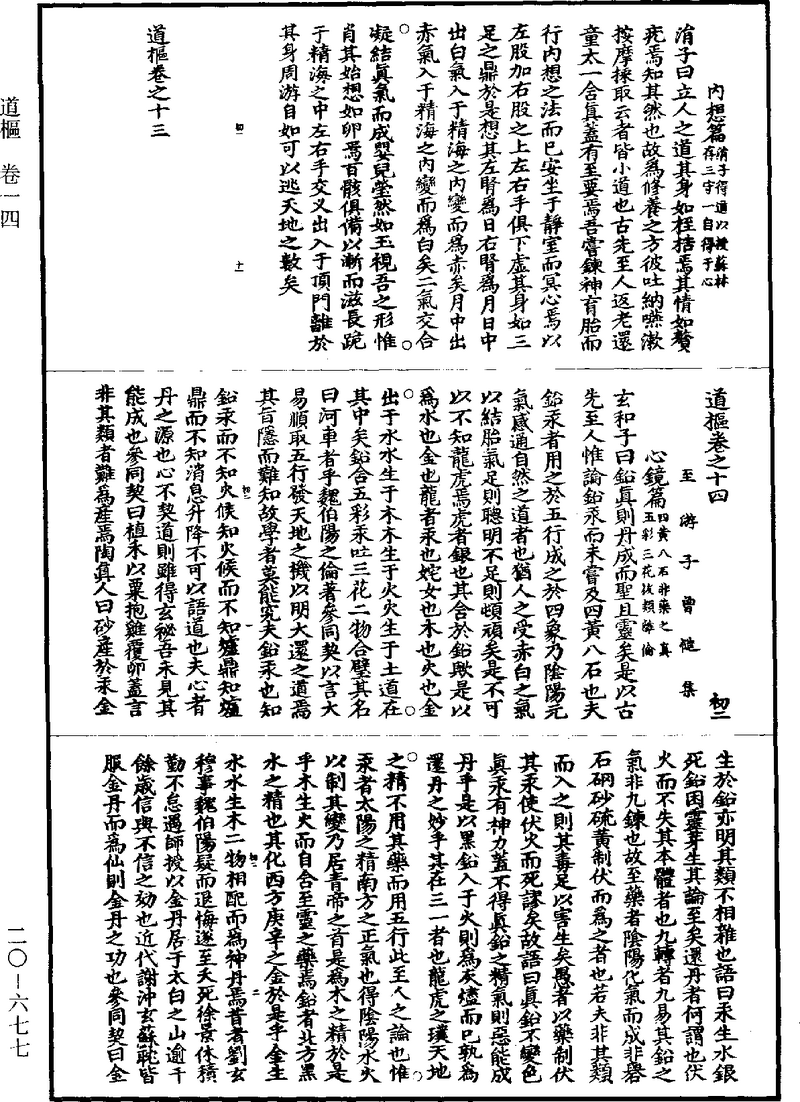 道樞　卷一四
二〇－六七七
內想篇 涓子得道以授蘇林
存三守一自得于心
涓子曰立人之道其身如桎梏焉其情如贅
疣焉知其然也故為修養之方彼吐納嚥漱
按摩採取云者皆小道也古先至人返老還
童太一合真蓋有至要焉吾嘗鍊神育胎而
行內想之法而已安坐于靜室而冥心焉以
左股加右股之上左右手俱下虛其身如三
足之鼎於是想其左腎為日右腎為月日中
出白氣入于精海之內變而為赤矣月中出
赤氣入于精海之內變而為白矣二氣交合
凝結真氣而成嬰兒瑩然如玉視吾之形惟
肖其始想如卵焉百骸俱備以漸而滋長跪
于精海之中左右手交叉出入于頂門離於
其身周游自如可以逃天地之數矣
初一
十一
道樞卷之十三
道樞卷之十四
初二
至游子曾慥集
心鏡篇 四黃八石非藥之真
五彩三花故類非倫
玄和子曰鉛真則丹成而聖且靈矣是以古
先至人惟論鉛汞而未嘗及四黃八石也夫
鉛汞者用之於五行成之於四象乃陰陽元
氣感通自然之道者也猶人之受赤白之氣
以結胎氣足則聰明不足則頑矣是不可
以不知龍虎焉虎者銀也其合於鉛歟是以
為水也金也龍者汞也姹女也木也火也金
出于水水生于木木生于火火生于土道在
其中矣鉛合五彩汞吐三花二物合璧其名
曰河車者乎魏伯陽之倫著參同契以言大
易順取五行發天地之機以明大還之道焉
其旨隱而難知故學者莫能究夫鉛汞也知
鉛汞而不知火候知火候而不知爐鼎知爐
鼎而不知消息升降不可以語道也夫心者
丹之源也心不契道則雖得玄祕吾未見其
能成也參同契曰植禾以粟抱雞覆卵蓋言
非其類者難為產焉陶真人曰砂產於汞金
初二
一
生於鉛亦明其類不相雜也語曰汞生水銀
死鉛因靈芽生其論至矣還丹者何謂也伏
火而不失其本體者也九轉者九易其鉛之
氣非九鍊也故至藥者陰陽化氣而成非礜
石硇砂硫黃制伏而為之者也若夫非其類
而入之則其毒足以害生矣愚者以藥制伏
其汞使伏火而死謬矣故語曰真鉛不變色
真汞有神力蓋不得真鉛之精氣則惡能成
丹乎是以黑鉛入于火則為灰燼而已孰為
還丹之妙乎其在三一者也龍虎之璞天地
之精不用其藥而用五行此至人之論也惟
汞者太陽之精南方之正氣也得陰陽水火
以制其變乃居青帝之首是為木之精於是
乎木生火而自合至靈之藥焉鉛者北方黑
水之精也其化西方庚辛之金於是乎金生
水水生木二物相配而為神丹焉昔者劉玄
穆事魏伯陽疑而退悔遂至夭死徐景休積
勤不怠遇師授以金丹居于太白之山逾千
餘歲信與不信之効也近代謝沖玄蘇耽皆
服金丹而為仙則金丹之功也參同契曰金
初二
二